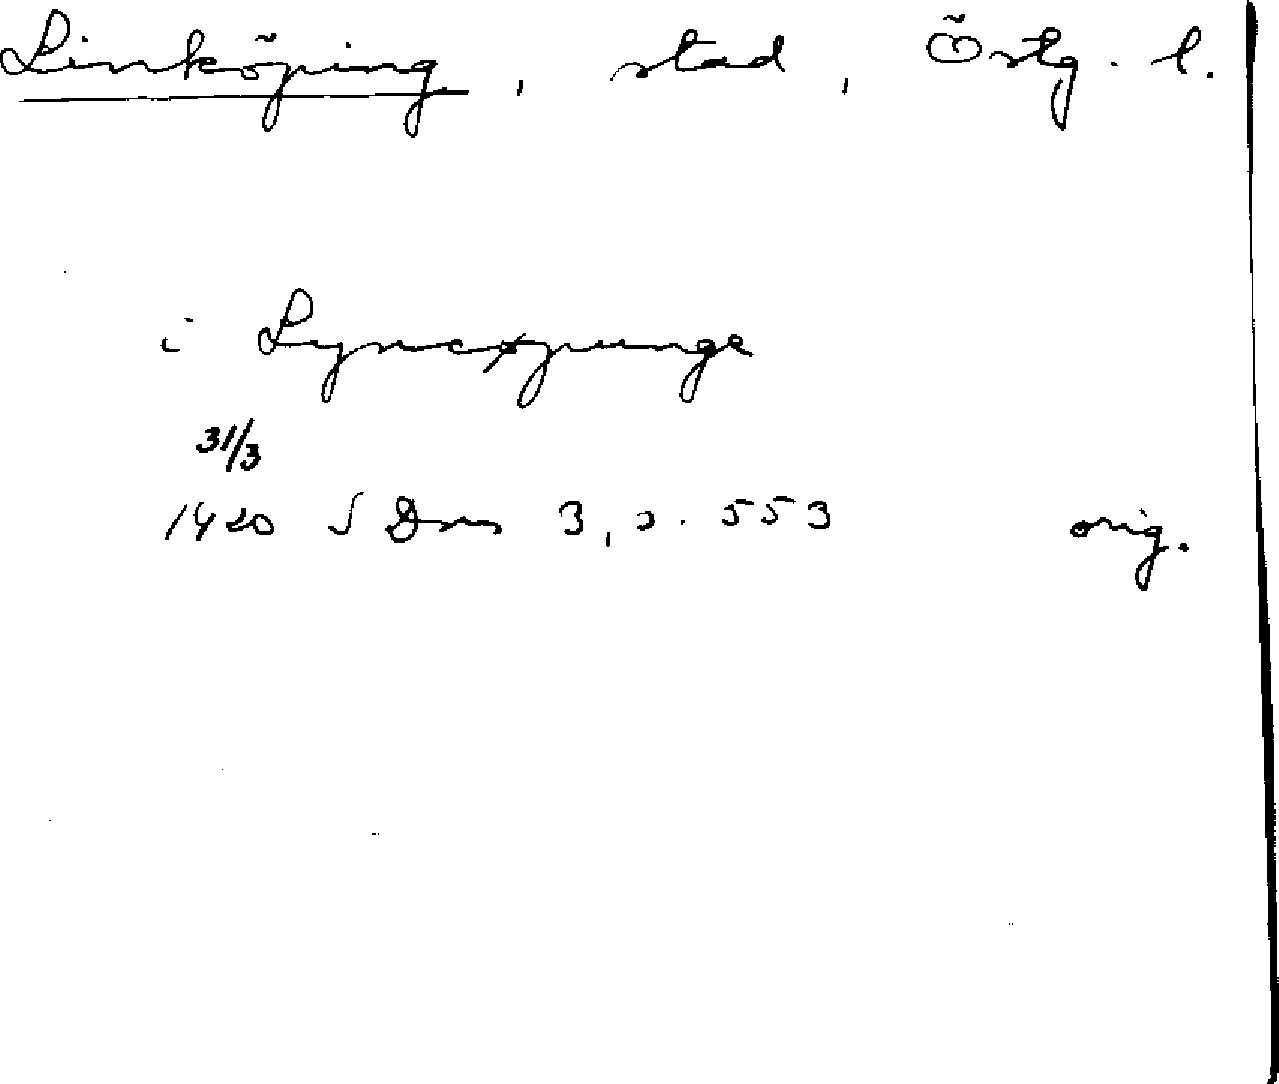 Linköping, stad, Östg. l.
i Lyncøpunge
31/3
1420 SDns 3, s. 553 orig.